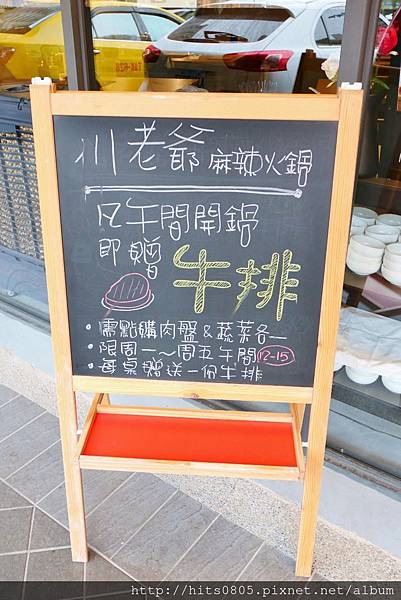 川老爺麻辣火鍋
凡午間開鍋
即贈
牛排
・需點購肉盤&蔬菜各一
・限周一~周五午間12-15
・每桌贈送一份牛排
http://hits0805.pixnet.net/album